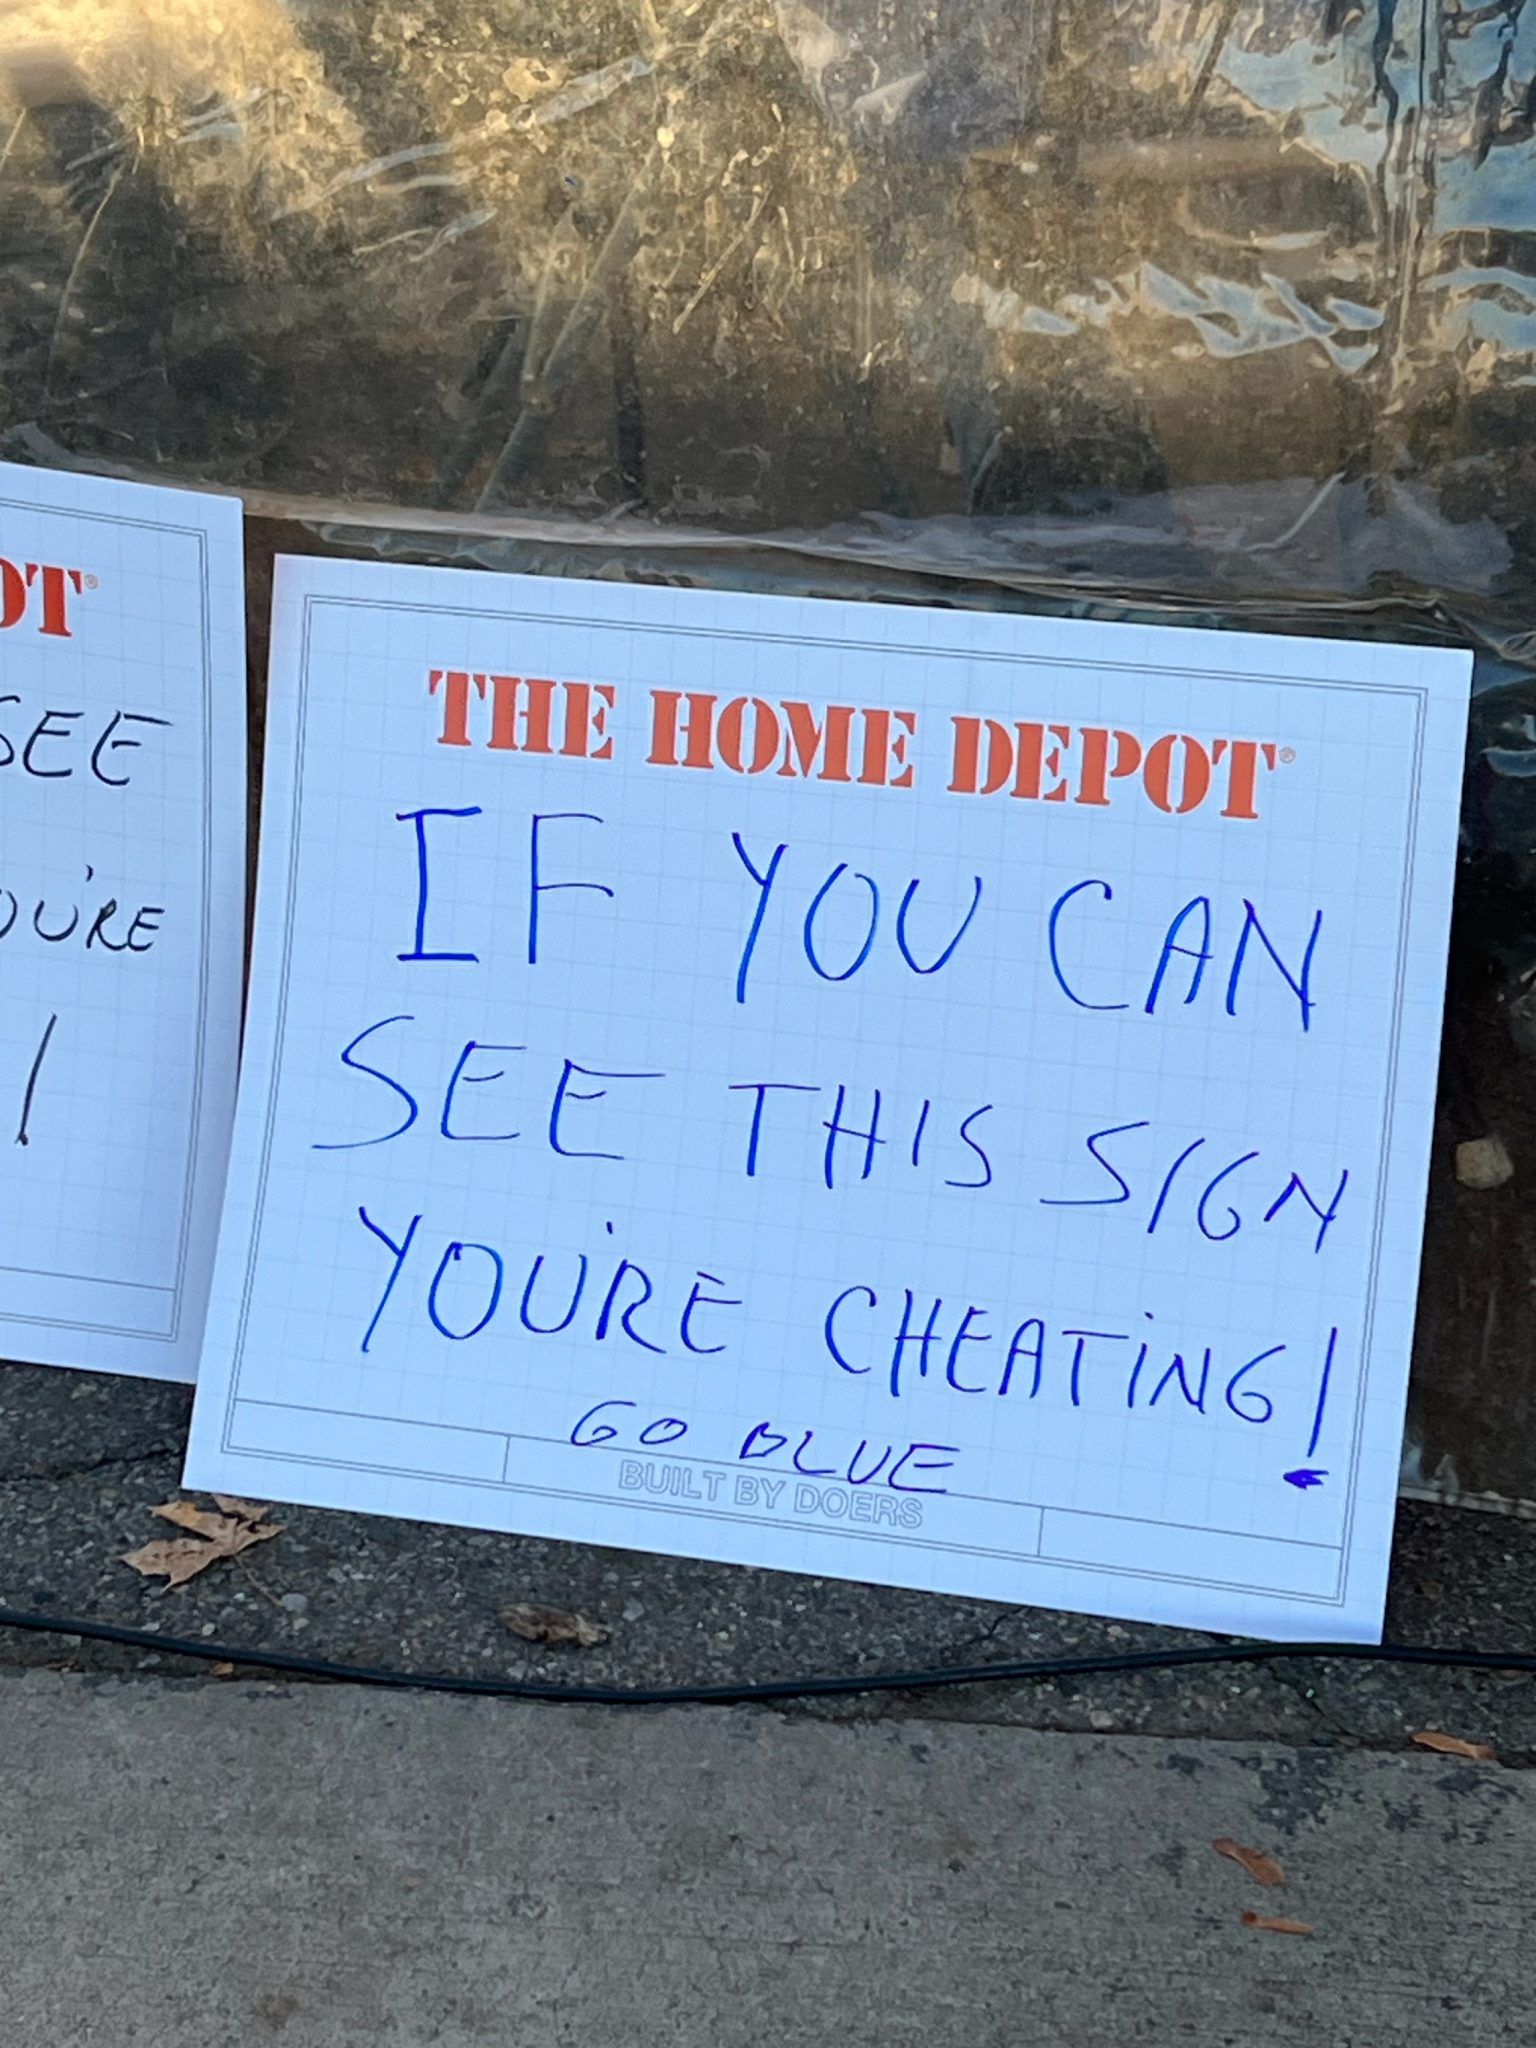 OT®
SEE
OU'RE
!
THE HOME DEPOT®
IF YOU CAN
SEE THIS SIGN
YOU'RE CHEATING!
GO BLUE
BUILT BY DOERS